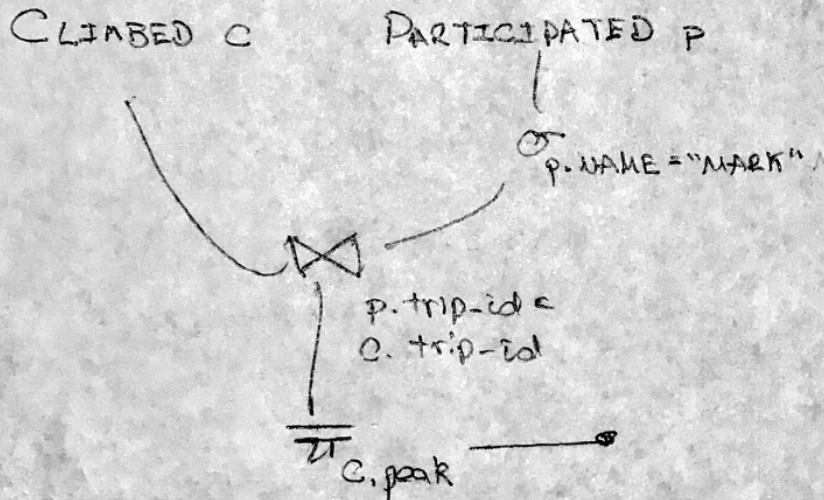 CLIMBED C PARTICIPATED P
σ p.NAME = "MARK"
⋈
p.trip-id =
C.trip-id
π C.peak